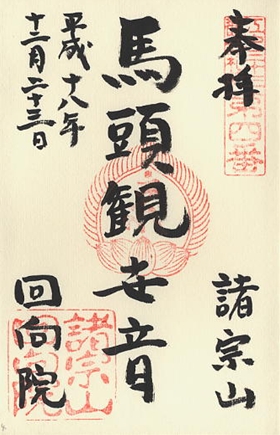 奉拝
諸宗山
馬頭観世音
平成十八年
十二月二十三日
回向院
諸宗山
回向院